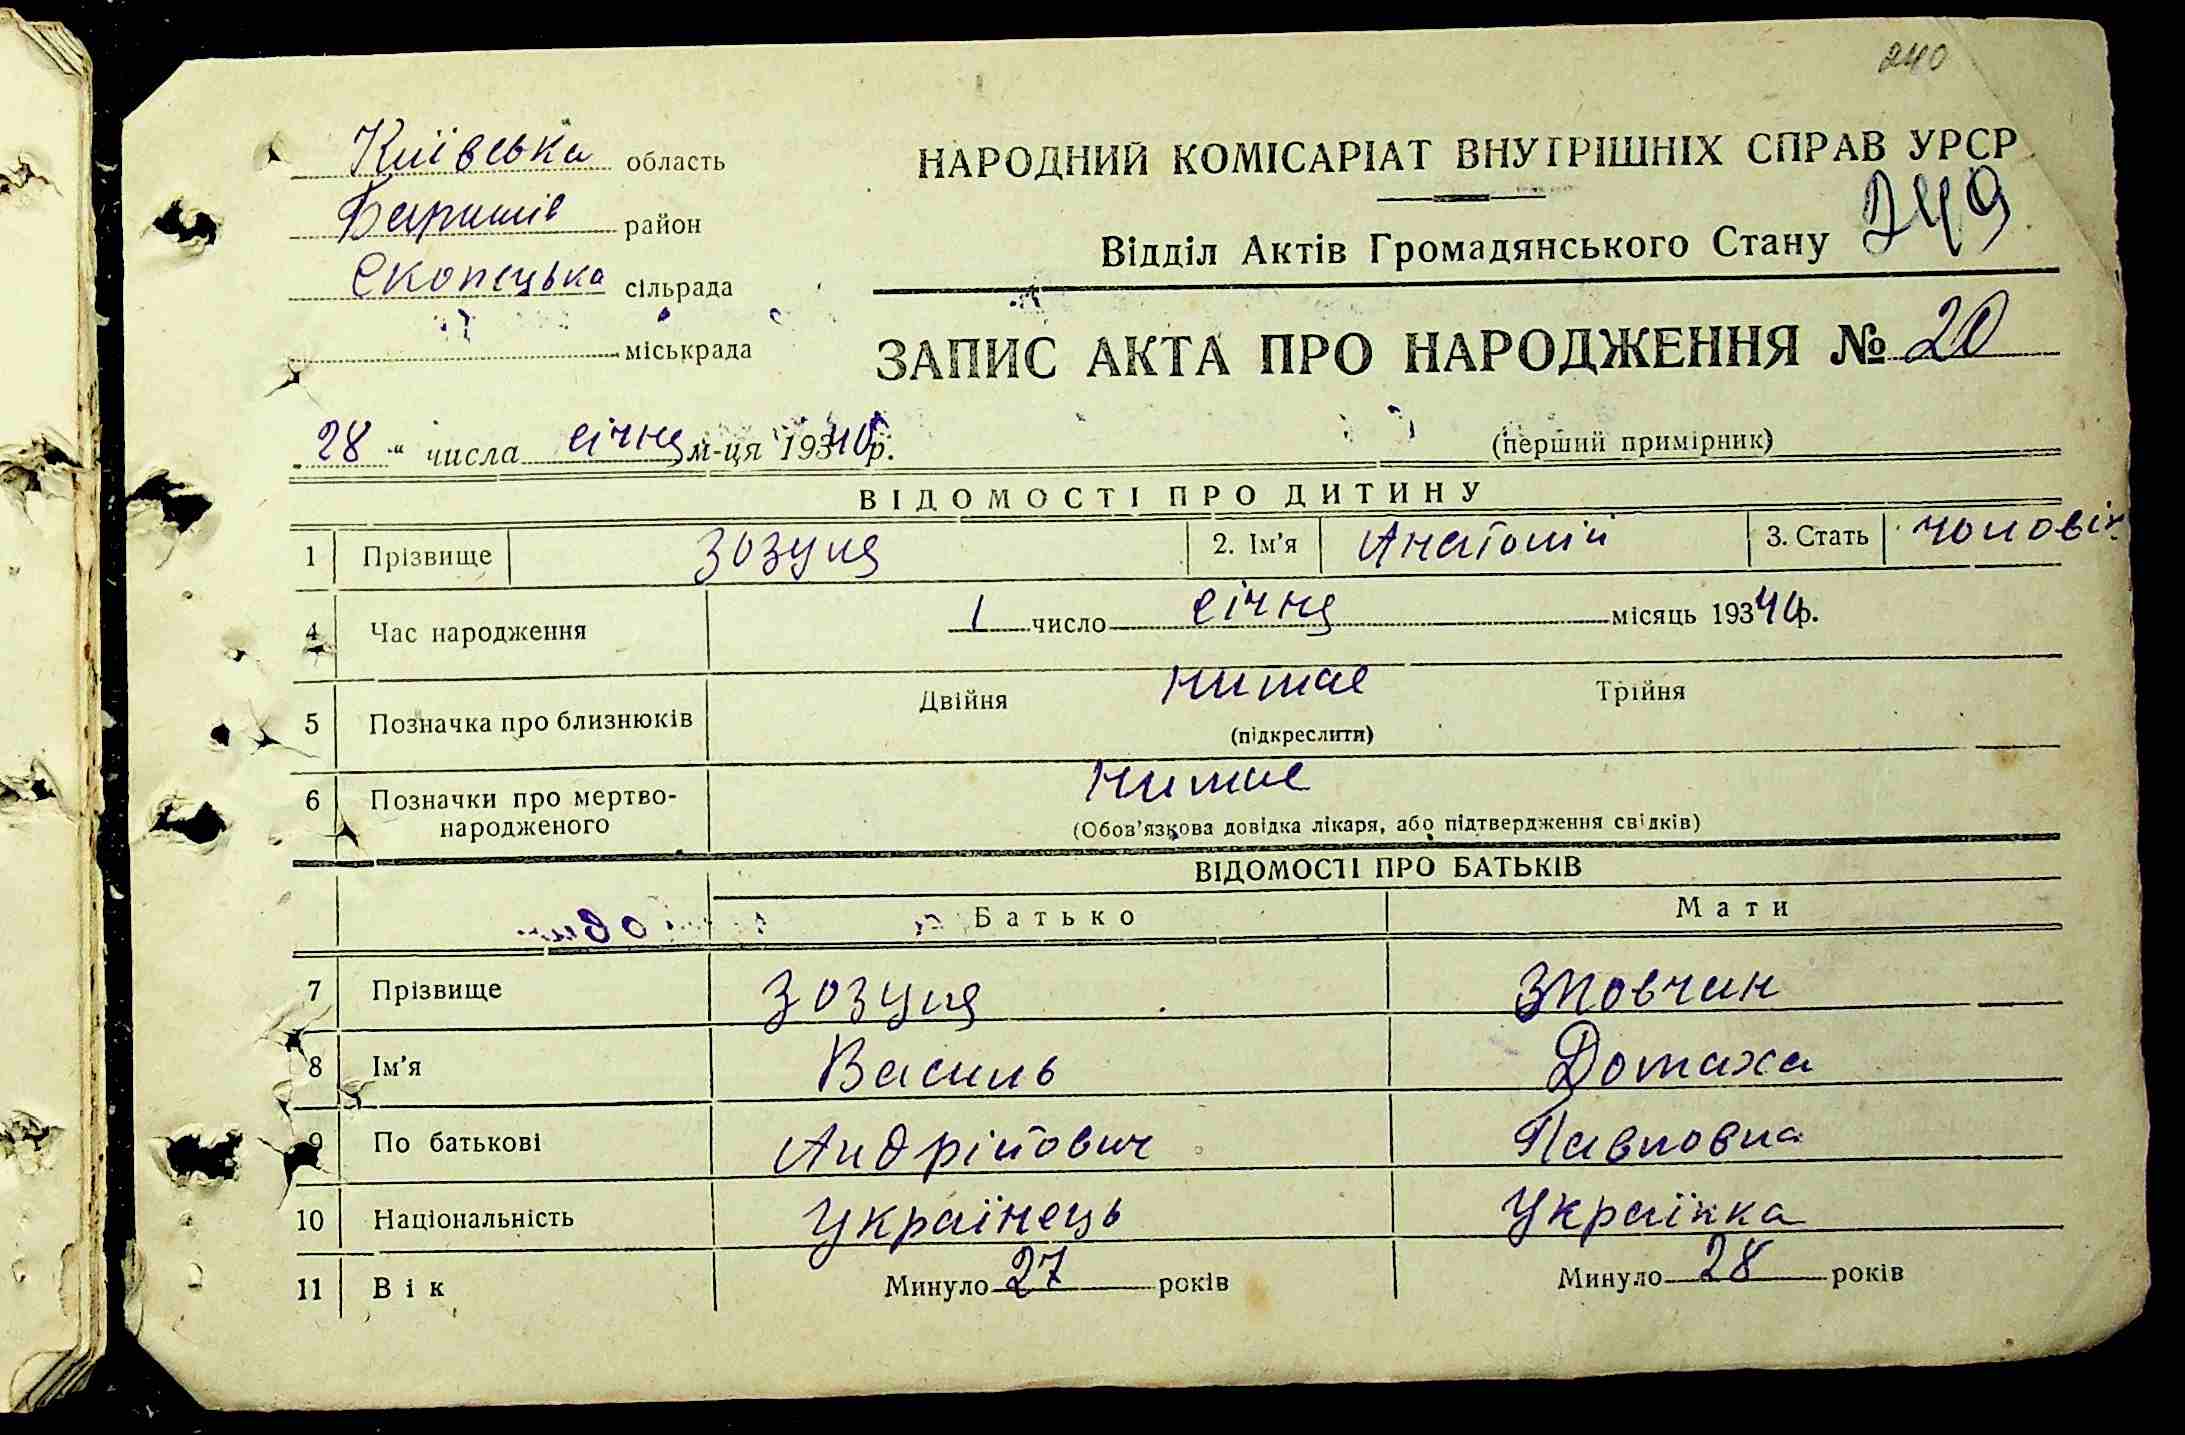 240
Київська область
Баришів район
Скопецька сільрада
міськрада
НАРОДНИЙ КОМІСАРІАТ ВНУТРІШНІХ СПРАВ УРСР
Відділ Актів Громадянського Стану 249
ЗАПИС АКТА ПРО НАРОДЖЕННЯ № 20
28 " числа січня м-ця 19340 р.
(перший примірник)
ВІДОМОСТІ ПРО ДИТИНУ
1 Прізвище Зозуля 2. Ім'я Анатолій 3. Стать чоловіч.
4 Час народження 1 число січня місяць 19340р.
5 Позначка про близнюків Двійня немає Трійня
(підкреслити)
6 Позначки про мертво-
народженого немає
(Обов'язкова довідка лікаря, або підтвердження свідків)
ВІДОМОСТІ ПРО БАТЬКІВ
Батько Мати
7 Прізвище Зозуля
8 Ім'я Василь Домаха
9 По батькові Андрійович Павловна
10 Національність Українець Українка
11 Вік Минуло 27 років Минуло 28 років